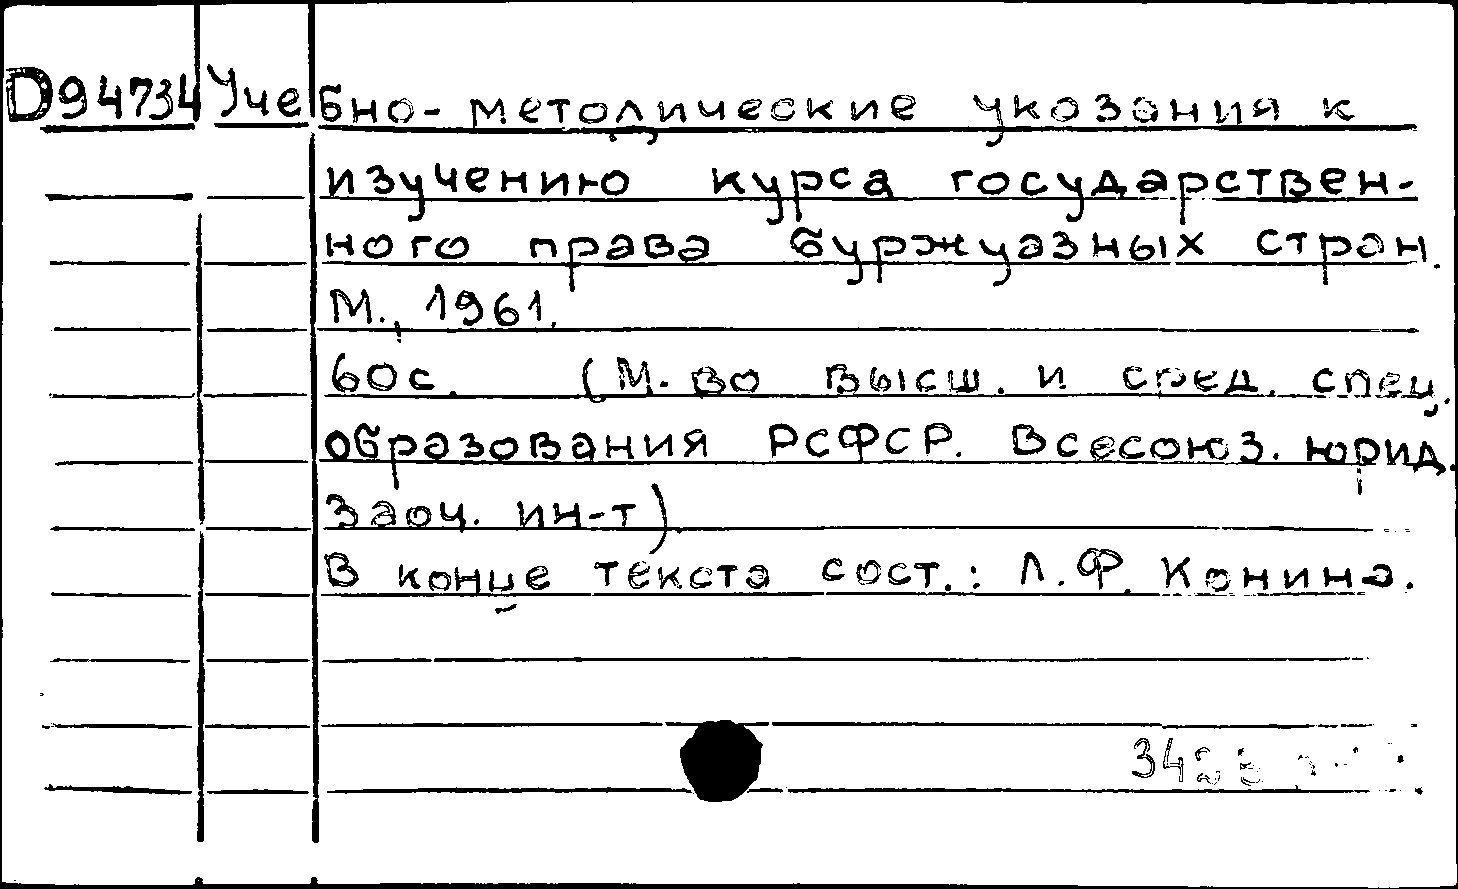 D94734 Учебно-методические указания к
изучению курса государствен-
ного права буржуазных стран.
М., 1961.
60с. (М-во высш. и сред. спец.
образования РСФСР. Всесоюз. юрид.
Заоч. ин-т).
В конце текста сост.: Л.Ф. Конина.